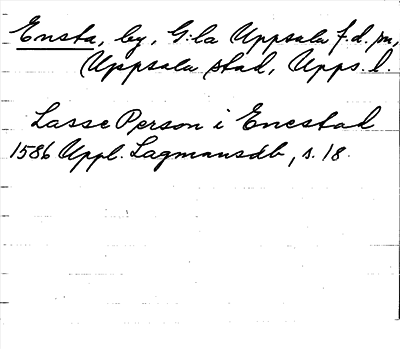 Ensta, by, G:la Uppsala f.d. sn,
Uppsala stad, Upps. l.
Lasse Person i Enestad
1586 Uppl. Lagmansdb, s. 18.